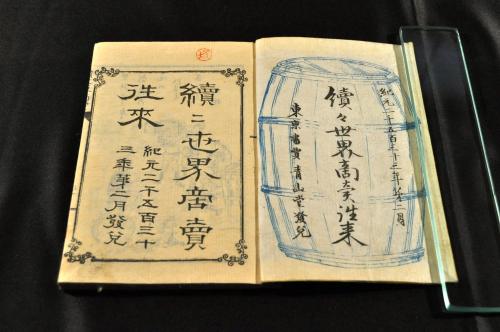 紀元二千五百三十三年第二月
續々世界商売往来
東京書賈青山堂發兌
續〻世界商賣
往來
紀元二千五百三十
三年第二月發兌